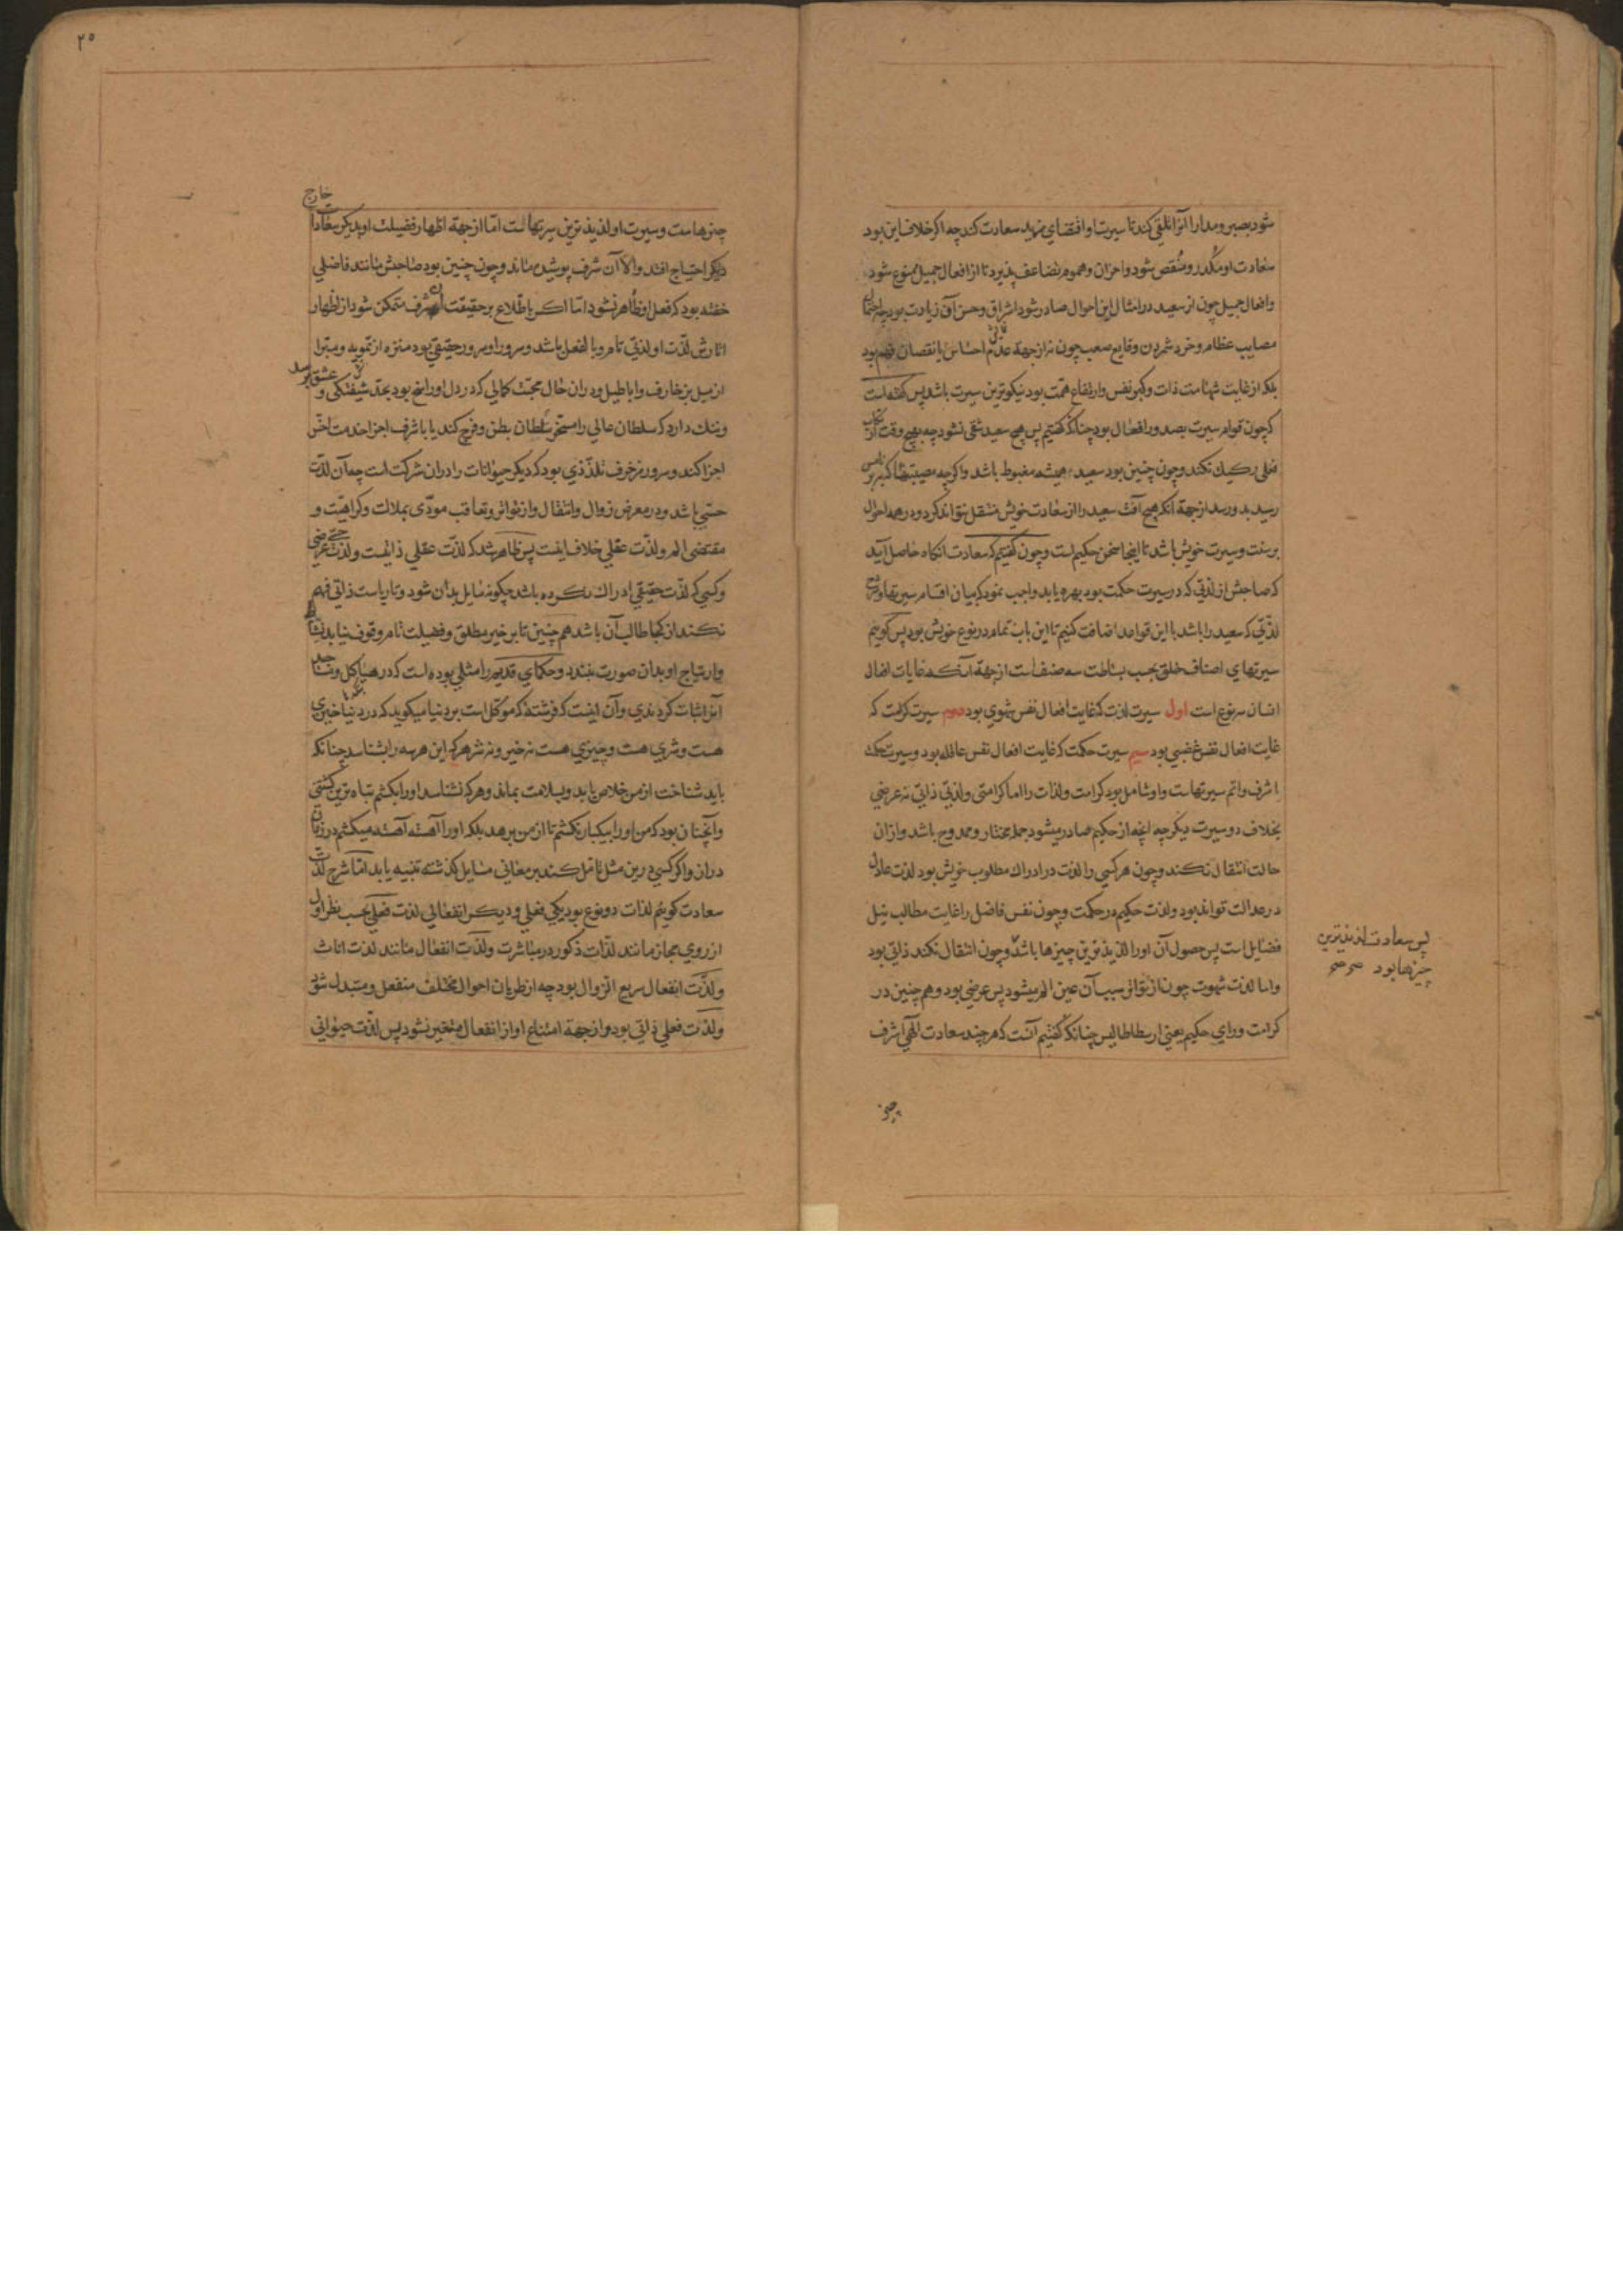 شود بصبر و مدارا آنرا تلقی کند تا سیرت او اقتضای مزید سعادت کند چه اکر خلاف این بود
سعادت او مکدر و منغص شود و احزان و هموم تضاعف پذیرد تا از افعال جمیل ممنوع شود
وافعال جمیل چون از سعید در امثال این احوال صادر شود اشراق و حسن آن زیادت بود چه احتمال
مصایب عظام و خرد شمردن وقایع صعب چون نه از جهة عدم احساس یا نقصان فهم بود
بلکه از غایت شهامت ذات و کبر نفس وارتفاع همت بود نیکوترین سیرت باشد پس کفته است
که چون قوام سیرت بصدور افعال بود چنانکه کفتیم پس هیچ سعید شقی نشود چه بهیچ وقت ارتکاب
فعلی رکیک نکند و چون چنین بود سعید همیشه مغبوط باشد واکرچه مصیبتها که بر
رسید بدو رسد از جهة آنکه هیچ آفت سعید را از سعادت خویش منتقل نتواند کرد و در همه احوال
بر سنت وسیرت خویش باشد تا اینجا سخن حکیم است وچون کفتیم که سعادت انکاه حاصل آید
که صاحبش از لذتی که در سیرت حکمت بود بهره یابد واجب نمود که بیان اقسام سیرتها و شرح
لذتی که سعید را باشد با این قواعد اضافت کنیم تا این باب تمام در نوع خویش بود پس کوییم
سیرتهای اصناف خلق بحسب بساطت سه صنف است از جهة آنکه غایات افعال
انسان سه نوع است اول سیرت لذت که غایت افعال نفس شهوی بود دوم سیرت کرامت که
غایت افعال نفس غضبی بود سیم سیرت حکمت که غایت افعال نفس عاقله بود و سیرت حکمت
اشرف واتم سیرتهاست واو شامل بود کرامت ولذات را اما کرامتی ولذتی ذاتی نه عرضی
بخلاف دو سیرت دیکر چه انچه از حکیم صادر میشود جمله مختار و ممدوح باشد و از ان
حالت انتقال نکند و چون هر کسی را لذت در ادراک مطلوب خویش بود لذت عادل
در عدالت تواند بود ولذت حکیم در حکمت و چون نفس فاضل را غایت مطالب نیل
فضایل است پس حصول آن او را لذیذترین چیزها باشد و چون انتقال نکند ذاتی بود
پس سعادت لذیذترین
چیزها بود صح صح
واما لذت شهوت چون از تواتر سبب آن عین الم میشود پس عرضی بود و هم چنین در
کرامت ورای حکیم یعنی ارسطاطالیس چنانکه کفتیم آنست که هر چند سعادت الهی اشرف
چیز
۲۵
خارج
چیزهاست وسیرت او لذیذترین سیرتهاست امّا از جهة اظهار فضیلت او بدیکر سعادات
دیکر احتیاج افتد والا آن شرف پوشیده ماند و چون چنین بود صاحبش مانند فاضلی
خفته بود که فعل او ظاهر نشود امّا اکر با طلاع بر حقیقت آن شرف متمکن شود از اظهار
اثارش لذّت او لذتی تام و بالفعل باشد و سرور او سرور حقیقی بود منزه از تمویه و مبرّا
از میل بزخارف واباطیل ودران حال محبّت کمالی که در دل او راسخ بود بحدّ شیفتکی و
عشق رسد
وننک دارد که سلطان عالی را مسخر سلطان بطن و فرج کند یا با شرف اجزا خدمت اخسّ
اجزا کند و سرور مزخرف تلذّذی بود که دیکر حیوانات را دران شرکت است چه آن لذّت
حسّی باشد و در معرض زوال وانتقال واز تواتر و تعاقب مودّی بملالت وکراهیّت و
مقتضی الم ولذّت عقلی خلاف اینست پس ظاهر شد که لذّت عقلی ذاتیست ولذّت حسی عرضی
وکسی که لذّت حقیقی ادراک نکرده باشد چکونه مایل بدان شود و تا ریاست ذاتی فهم
نکند از کجا طالب آن باشد هم چنین تا بر خیر مطلق و فضیلت تام وقوف نیابد نشاط
وارتیاح او بدان صورت نبندد و حکمای قدیم را مثلی بوده است که در هیاکل و مساجد
آنرا اثبات کردندی وآن اینست که فرشته که موکّل است بر دنیا میکوید که در دنیا خیری
هست و شری هست و چیزی هست نه خیر و نه شر هر که این هر سه را بشناسد چنانکه
باید شناخت از من خلاص یابد و بسلامت بماند و هر که نشناسد او را بکشم تباه ترین کشتنی
وآنچنان بود که من او را بیکبار نکشم تا از من برهد بلکه او را آهسته آهسته میکشم در زمان
دراز واکر کسی درین مثل تامّل کند بر معانی مسایل کذشته تنبیه یابد امّا شرح لذّت
سعادت کوییم لذات دو نوع بود یکی فعلی و دیکر انفعالی لذت فعلی بحسب نظر اول
از روی مجاز مانند لذّات ذکور در مباشرت ولذّت انفعال مانند لذت اناث
ولذّت انفعال سریع الزوال بود چه از طریان احوال مختلف منفعل و متبدل شود
ولذّت فعلی ذاتی بود واز جهة امتناع او از انفعال متغیر نشود پس لذّت حیوانی